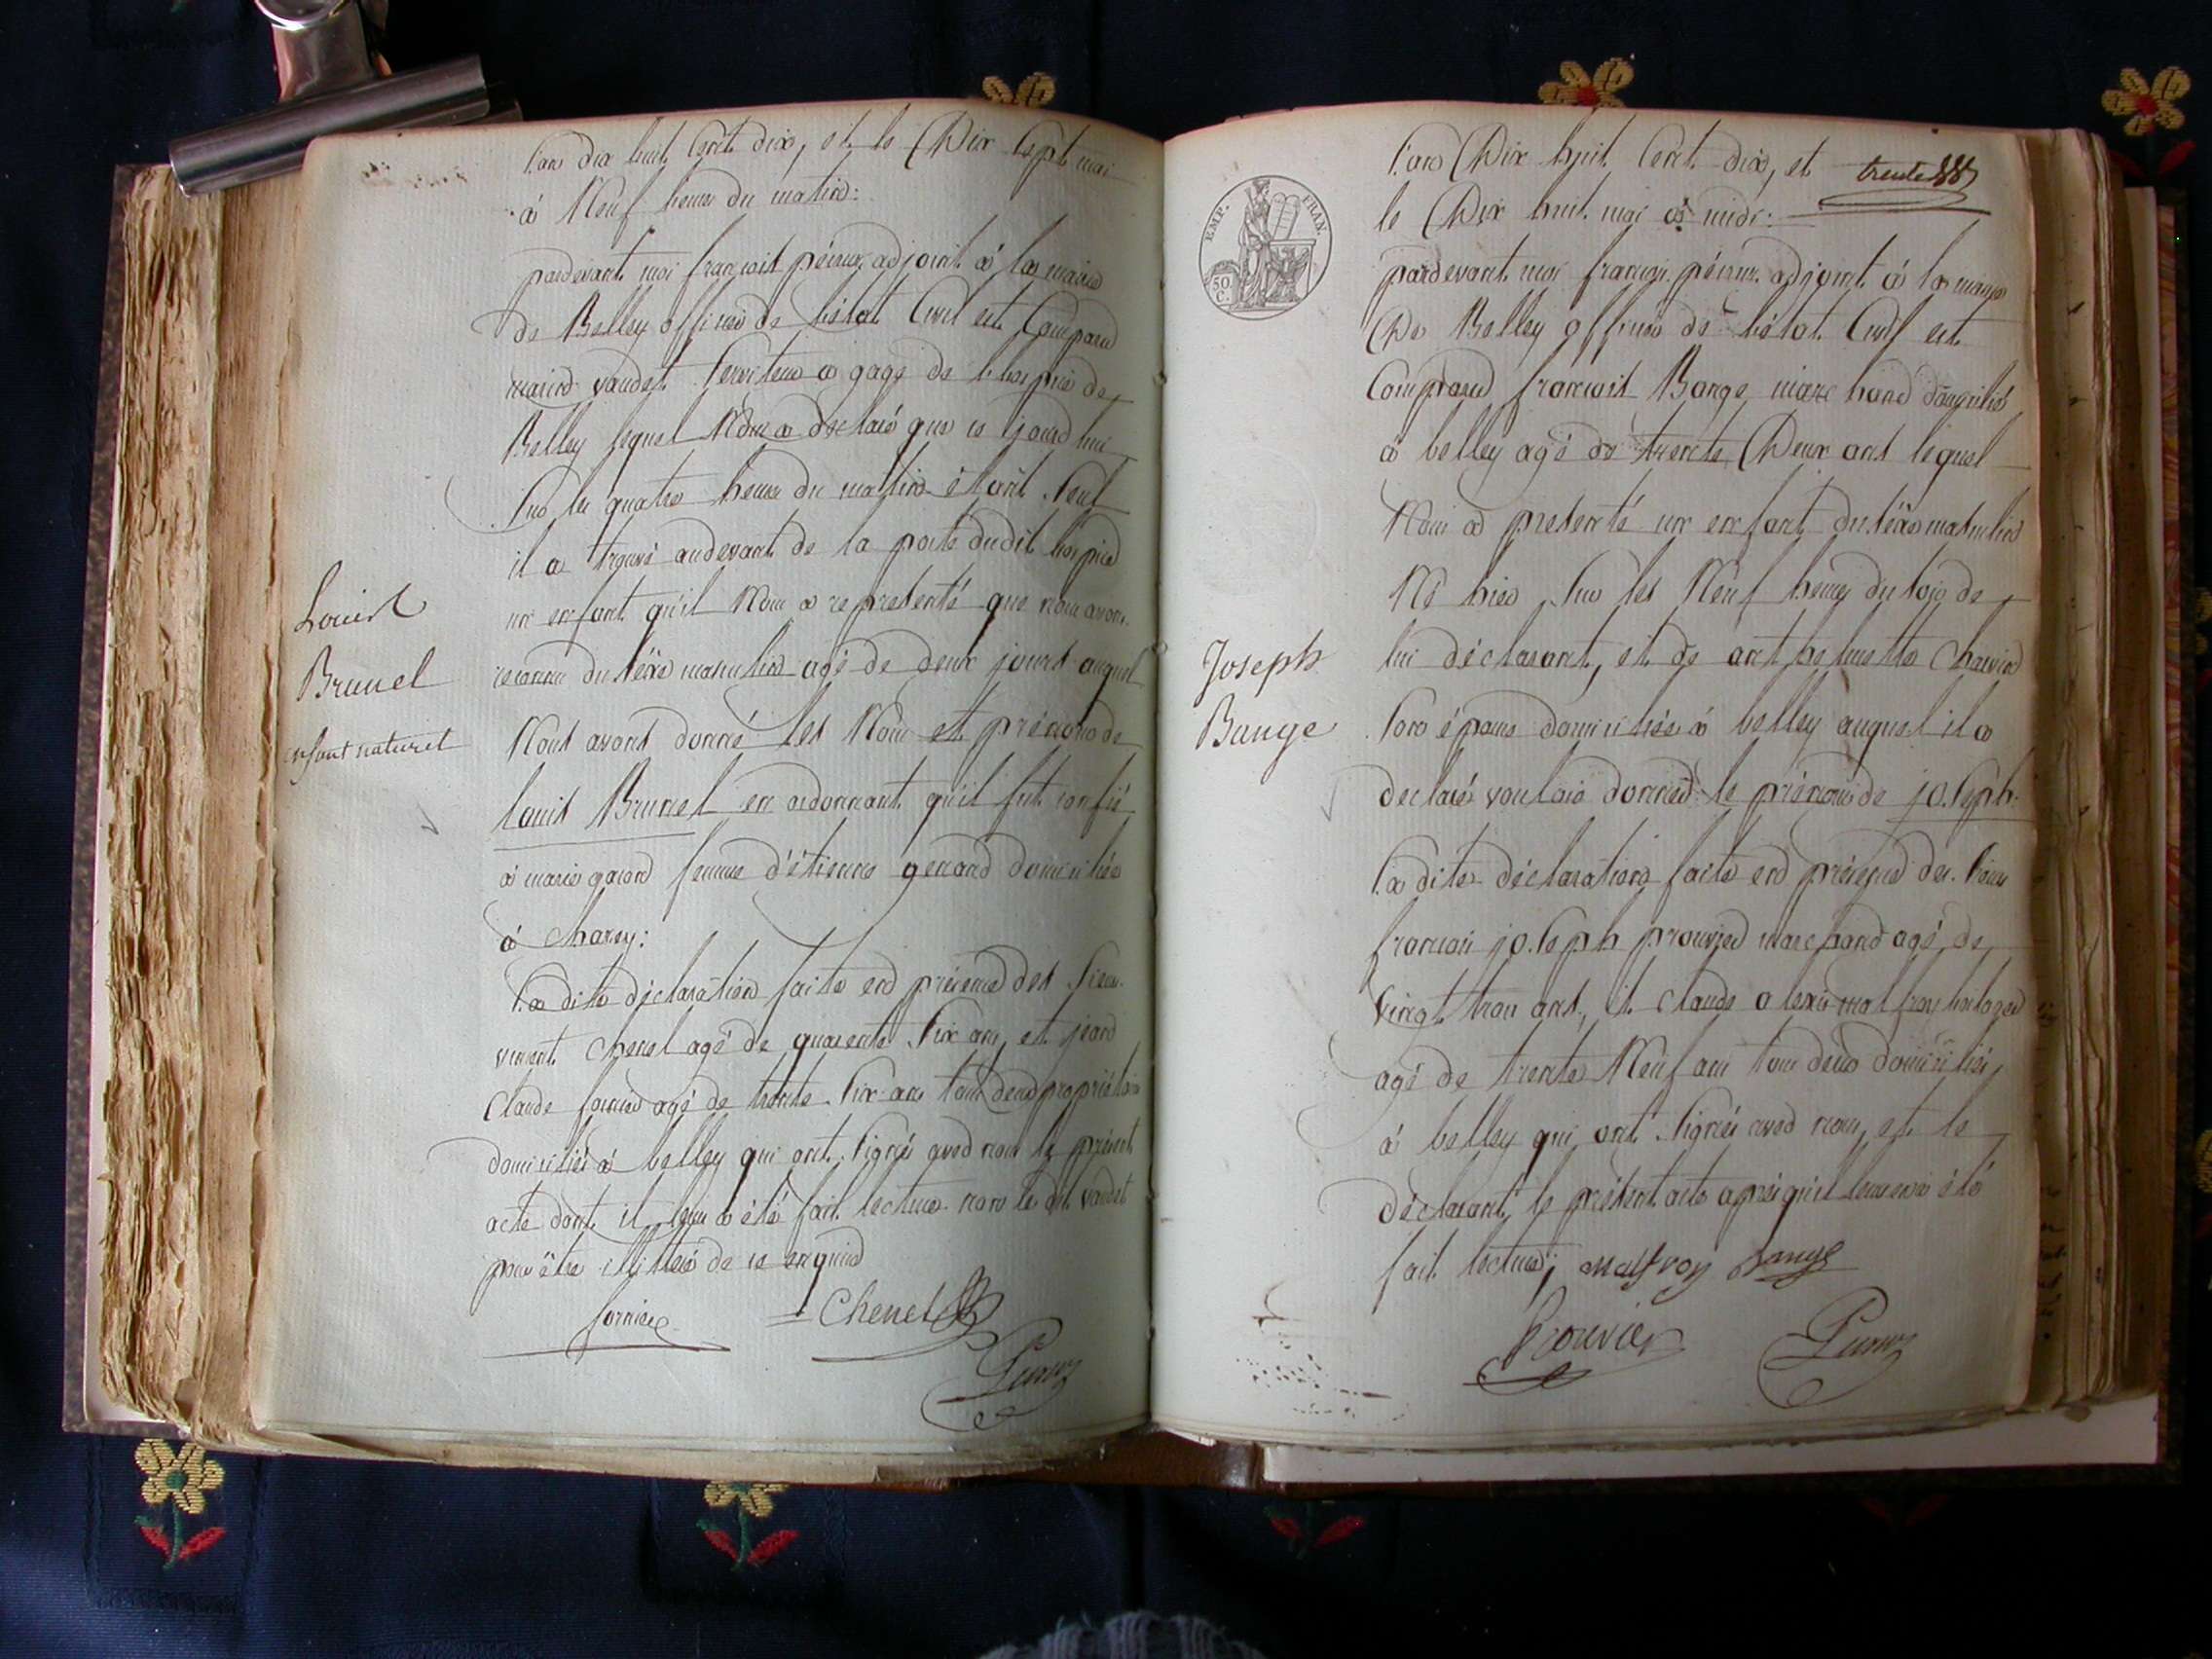 l'an dix huit cent dix, et le Dix sept mai
à Neuf heures du matin:
pardevant moi françois péruz adjoint à la mairie
de Belley officier de l'état Civil est Comparu
vaudet serviteur a gage de l'hospice de
Belley lequel Nous a declaré que ce jourd'hui
sur les quatre heures du matin étant seul
il a trouvé audevant de la porte dudit hospice
un enfant qu'il Nous a representé que nous avons
reconnu du séxe masculin agé de deux jours auquel
Nous avons donné les Nom et prénom de
louis Brunel en ordonnant qu'il fut confié
à marie femme d'étienne domiciliée
à
la dite déclaration faite en présence des sieurs
vincent Chenel agé de quarente six ans, et jean
Claude agé de trente six ans tous deux propriétaires
domiciliés à belley qui ont signés avec nous le présent
acte dont il leur a été fait lecture non le dit vaudet
pour être illitéré de ce enquis
fornier Chenel
Péruz
Louis
Brunel
enfant naturel
EMP. FRAN.
50 C.
trente
l'an Dix huit Cent dix, et
le Dix huit mai à midi:
pardevant moi françois péruz adjoint à la mairie
De Belley officier de l'état Civil est
Comparu françois Bange marchand
à belley agé de trente Deux ans lequel
Nous a presenté un enfant du séxe masculin
Né hier sur les Neuf heures du soir de
lui déclarant, et de anthelmette
son épouse domiciliée à belley auquel il a
declaré vouloir donner le prénom de joseph
la dite déclaration faite en présence des sieurs
françois joseph prouvier marchand agé de
vingt trois ans, et claude alexis malfroy horloger
agé de trente Neuf ans tous deux domiciliés
à belley qui ont signés avec nous, et le
déclarant le présent acte après qu'il leur en a été
fait lecture; malfroy Bange
Prouvier Péruz
Joseph
Bange